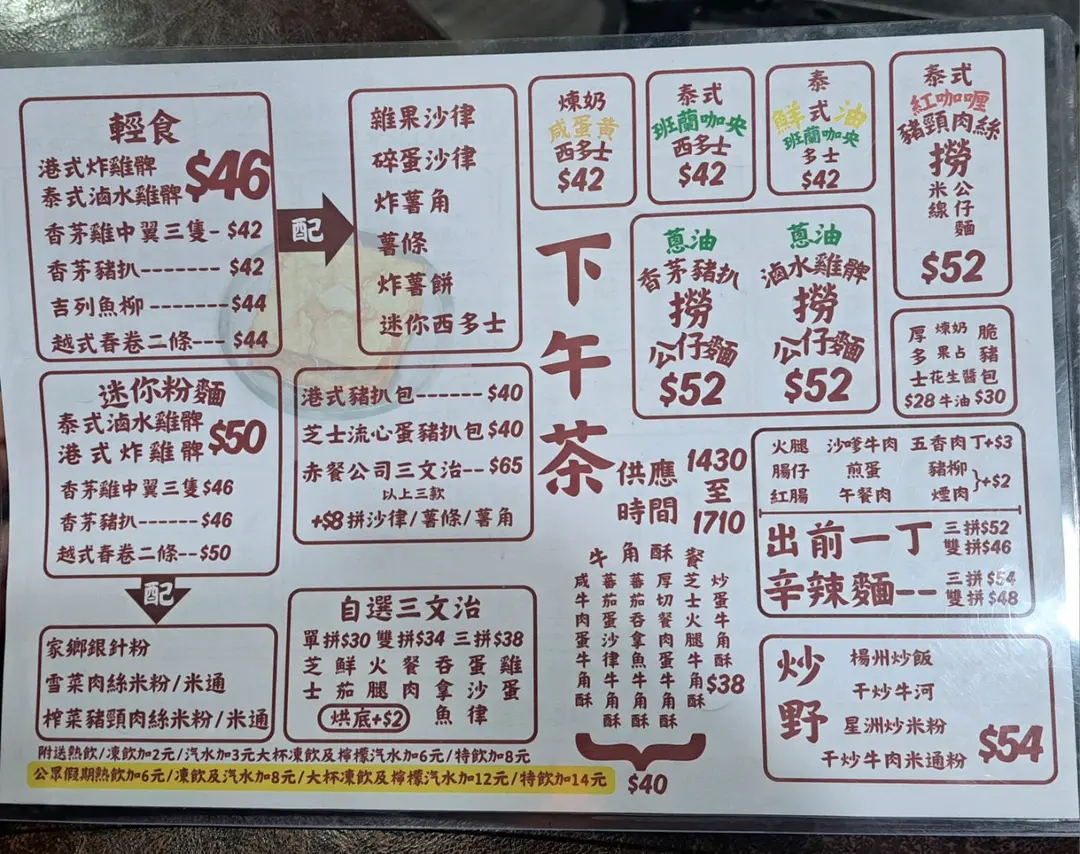 輕食
港式炸雞髀
泰式滷水雞髀 $46
香茅雞中翼三隻- $42
香茅豬扒------- $42
吉列魚柳------- $44
越式春卷二條--- $44
配
雜果沙律
碎蛋沙律
炸薯角
薯條
炸薯餅
迷你西多士
迷你粉麵
泰式滷水雞髀
港式炸雞髀 $50
香茅雞中翼三隻 $46
香茅豬扒------ $46
越式春卷二條-- $50
配
家鄉銀針粉
雪菜肉絲米粉/米通
榨菜豬頸肉絲米粉/米通
港式豬扒包------ $40
芝士流心蛋豬扒包 $40
赤餐公司三文治-- $65
以上三款
+$8 拼沙律/薯條/薯角
自選三文治
單拼$30 雙拼$34 三拼$38
芝士
鮮茄
火腿
餐肉
吞拿魚
蛋沙律
雞蛋
烘底+$2
下午茶
供應時間
1430
至
1710
煉奶
咸蛋黃
西多士
$42
泰式
班蘭咖央
西多士
$42
泰式
鮮油
班蘭咖央
多士
$42
泰式
紅咖喱
豬頸肉絲
撈
米線
公仔麵
$52
蔥油
香茅豬扒
撈
公仔麵
$52
蔥油
滷水雞髀
撈
公仔麵
$52
厚多士
$28
煉奶
果占
花生醬
牛油
脆豬包
$30
火腿 沙嗲牛肉 五香肉丁+$3
腸仔 煎蛋 豬柳
紅腸 午餐肉 煙肉
+$2
出前一丁 三拼$52
雙拼$46
辛辣麵-- 三拼$54
雙拼$48
牛角酥餐
咸牛肉蛋牛角酥
蕃茄蛋沙律牛角酥
蕃茄吞拿魚牛角酥
厚切餐肉蛋牛角酥
芝士火腿牛角酥
炒蛋牛角酥
$38
$40
炒野
楊州炒飯
干炒牛河
星洲炒米粉
干炒牛肉米通粉
$54
附送熱飲/凍飲加2元/汽水加3元大杯凍飲及檸檬汽水加6元/特飲加8元
公眾假期熱飲加6元/凍飲及汽水加8元/大杯凍飲及檸檬汽水加12元/特飲加14元